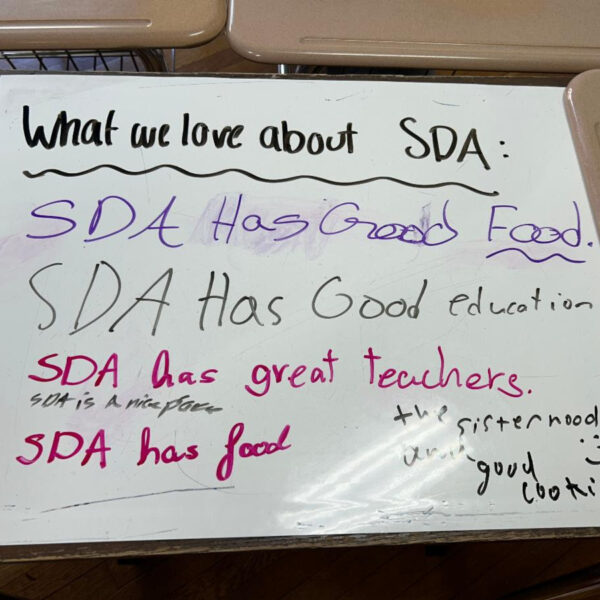 What we love about SDA:
SDA Has Good Food.
SDA Has Good education
SDA has great teachers.
SDA is A nice place
SDA has food
the sisterhood
and :)
good
cooki